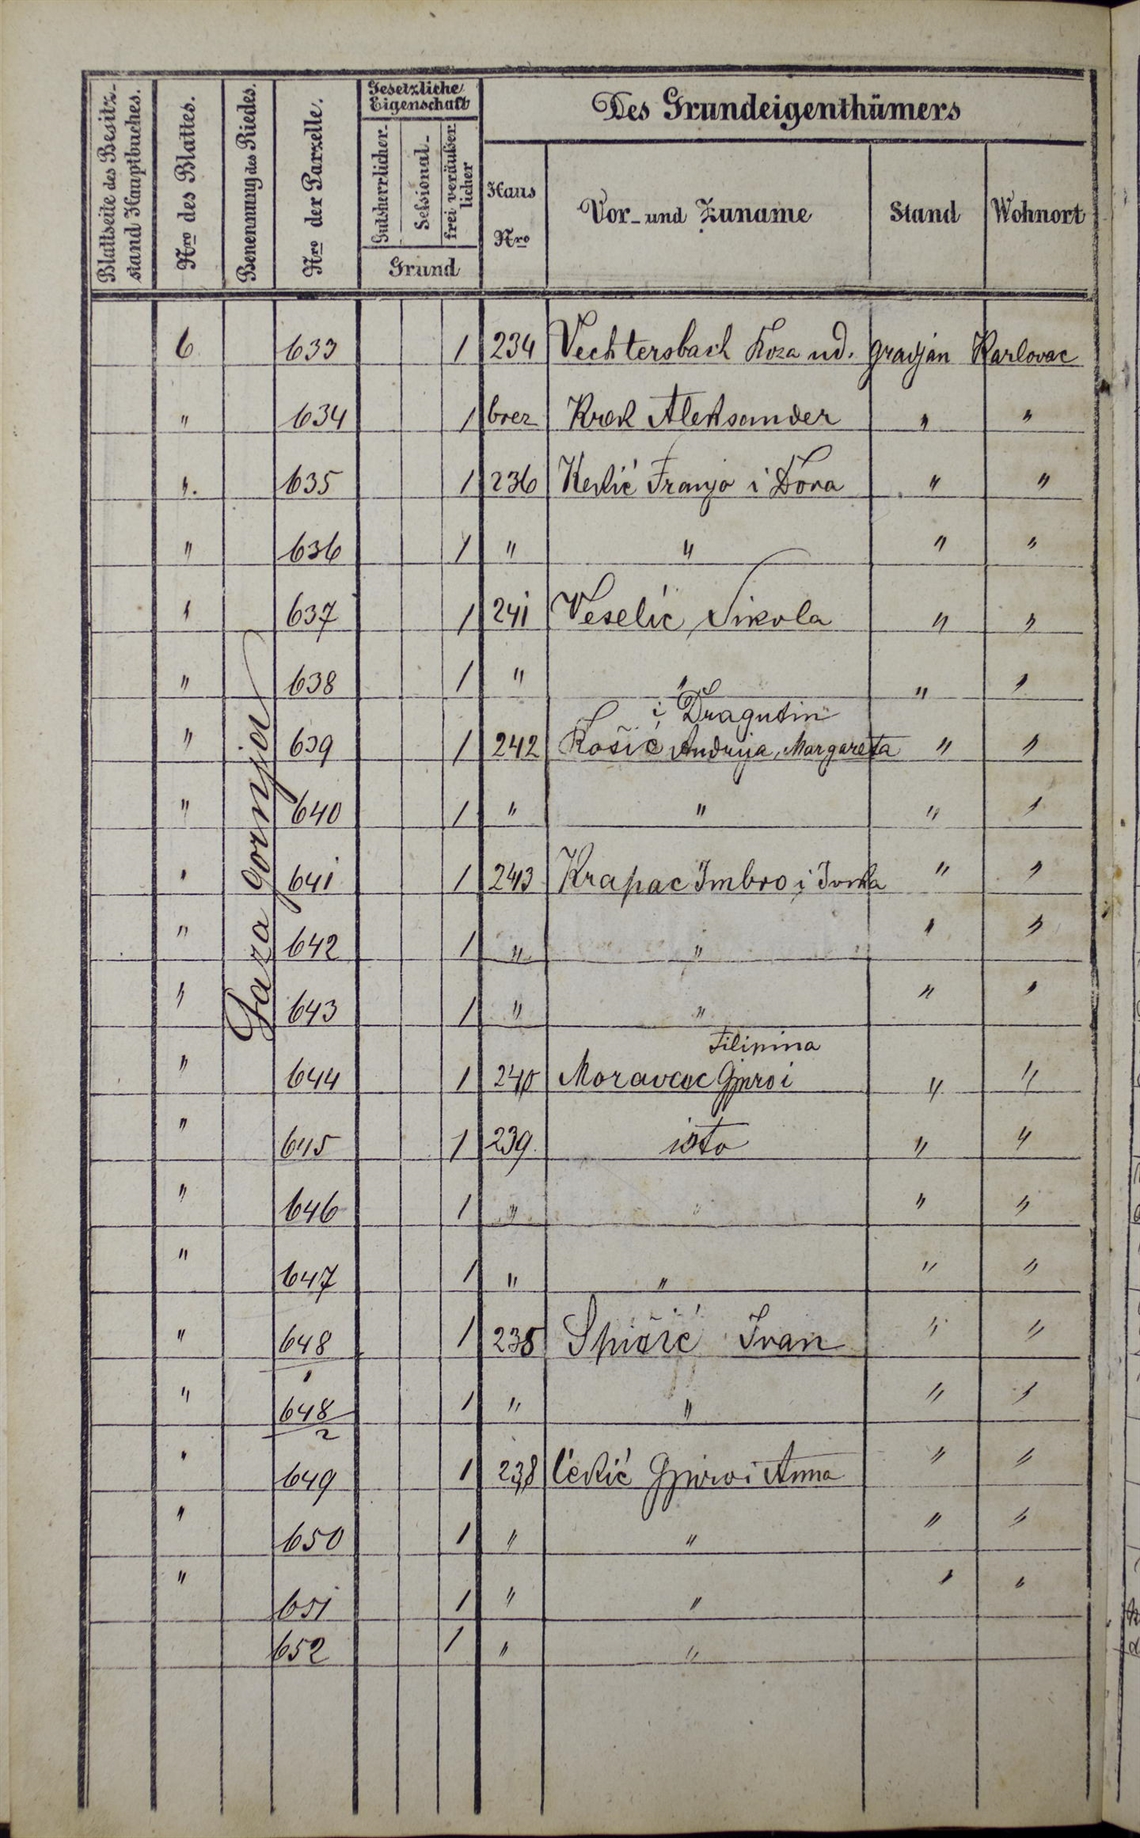 Blattseite des Besitz-
stand Hauptbuches.
Nro des Blattes.
Benennung des Riedes.
Nro der Parzelle.
Gesetzliche
Eigenschaft
Gutsherrlicher
Sessional-
frei veräußer
licher
Grund
Des Grundeigenthümers
Haus
Nro
Vor- und Zuname
Stand
Wohnort
Gaza gornja
6 633 1 234 Vechtersbach Roza ud. gradjan Karlovac
" 634 1 brez Kralj Aleksander " "
" 635 1 236 Keslić Franjo i Dora " "
" 636 1 " " " "
" 637 1 241 Veselić Nikola " "
" 638 1 " " " "
i Dragutin
" 639 1 242 Košić Andrija, Margareta " "
" 640 1 " " " "
" 641 1 243 Krapac Imbro i Ivka " "
" 642 1 " " " "
" 643 1 " " " "
Filipina
" 644 1 240 Moravac Gjuro i " "
" 645 1 239 isto " "
" 646 1 " " " "
" 647 1 " " " "
" 648/1 1 235 Spišić Ivan " "
" 648/2 1 " " " "
" 649 1 238 Gjuro i Anna " "
" 650 1 " " " "
" 651 1 " " " "
652 1 " "